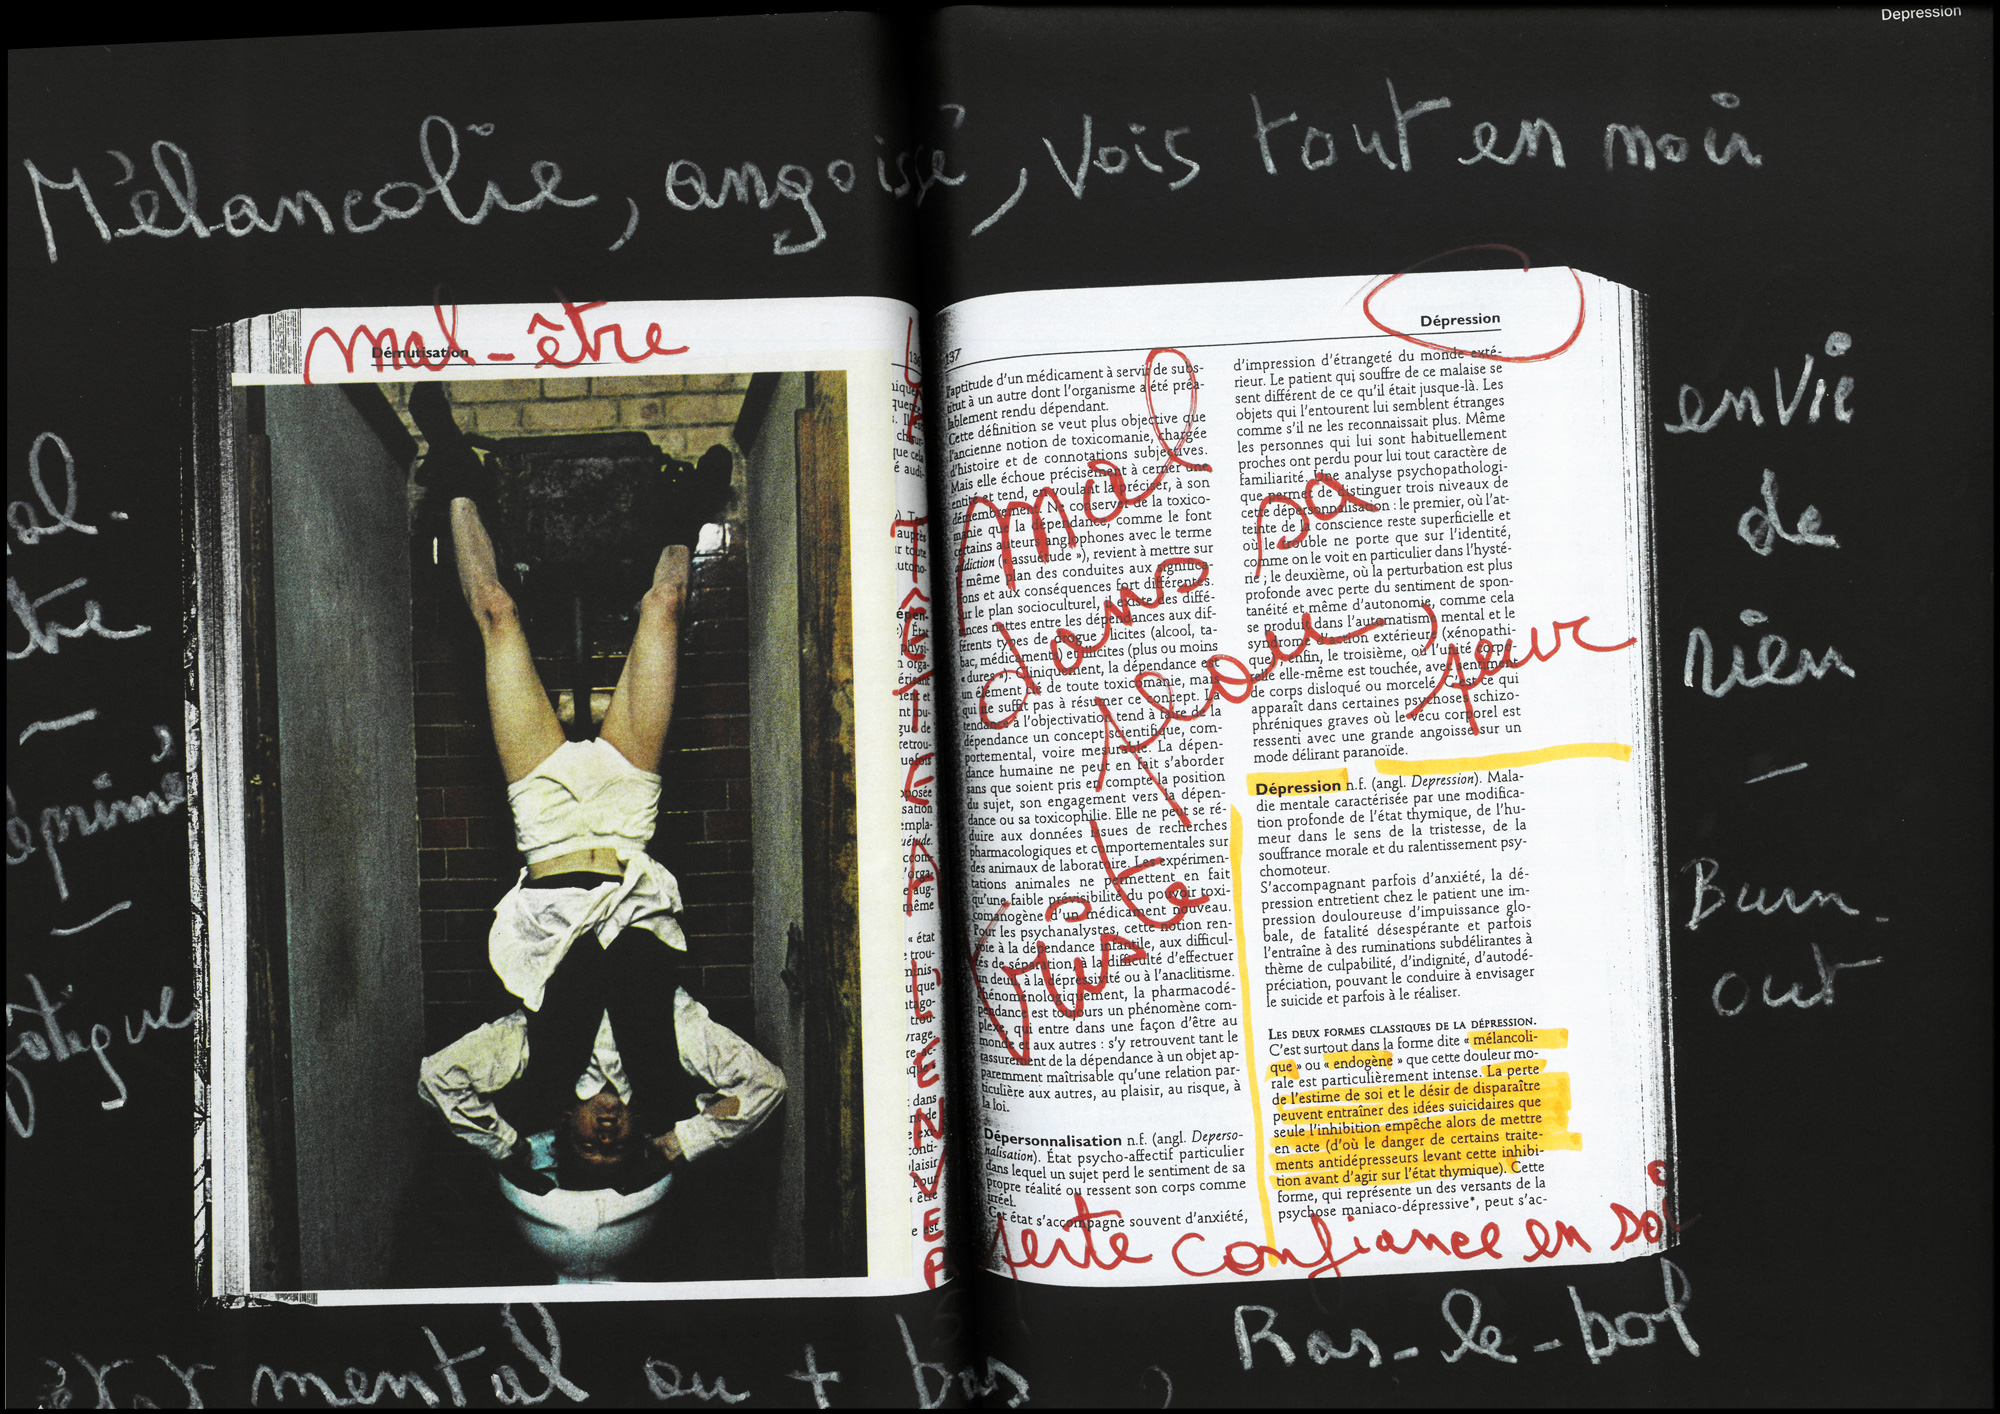 Depression
Mélancolie, angoissé, vois tout en noir
mal-être
Démutisation
137
Dépression
l'aptitude d'un médicament à servir de subs-
titut à un autre dont l'organisme a été préa-
lablement rendu dépendant.
Cette définition se veut plus objective que
l'ancienne notion de toxicomanie, chargée
d'histoire et de connotations subjectives.
Mais elle échoue précisément à cerner une
entité et tend, en voulant la préciser, à son
démembrement. Ne conserver de la toxico-
manie que la dépendance, comme le font
certains auteurs anglophones avec le terme
addiction (« assuétude »), revient à mettre sur
le même plan des conduites aux significa-
tions et aux conséquences fort différentes.
Sur le plan socioculturel, il existe des diffé-
rences nettes entre les dépendances aux dif-
férents types de drogue licites (alcool, ta-
bac, médicaments) et illicites (plus ou moins
« dures »). Cliniquement, la dépendance est
un élément clé de toute toxicomanie, mais
qui ne suffit pas à résumer ce concept. La
tendance à l'objectivation tend à faire de la
dépendance un concept scientifique, com-
portemental, voire mesurable. La dépen-
dance humaine ne peut en fait s'aborder
sans que soient pris en compte la position
du sujet, son engagement vers la dépen-
dance ou sa toxicophilie. Elle ne peut se ré-
duire aux données issues de recherches
pharmacologiques et comportementales sur
des animaux de laboratoire. Les expérimen-
tations animales ne permettent en fait
qu'une faible prévisibilité du pouvoir toxi-
comanogène d'un médicament nouveau.
Pour les psychanalystes, cette notion ren-
voie à la dépendance infantile, aux difficul-
tés de séparation, à la difficulté d'effectuer
un deuil, à la dépressivité ou à l'anaclitisme.
Phénoménologiquement, la pharmacodé-
pendance est toujours un phénomène com-
plexe, qui entre dans une façon d'être au
monde et aux autres : s'y retrouvent tant le
rassurement de la dépendance à un objet ap-
paremment maîtrisable qu'une relation par-
ticulière aux autres, au plaisir, au risque, à
la loi.
Dépersonnalisation n.f. (angl. Deperso-
nalisation). État psycho-affectif particulier
dans lequel un sujet perd le sentiment de sa
propre réalité ou ressent son corps comme
irréel.
Cet état s'accompagne souvent d'anxiété,
d'impression d'étrangeté du monde exté-
rieur. Le patient qui souffre de ce malaise se
sent différent de ce qu'il était jusque-là. Les
objets qui l'entourent lui semblent étranges
comme s'il ne les reconnaissait plus. Même
les personnes qui lui sont habituellement
proches ont perdu pour lui tout caractère de
familiarité. Une analyse psychopathologi-
que permet de distinguer trois niveaux de
cette dépersonnalisation : le premier, où l'at-
teinte de la conscience reste superficielle et
où le trouble ne porte que sur l'identité,
comme on le voit en particulier dans l'hysté-
rie ; le deuxième, où la perturbation est plus
profonde avec perte du sentiment de spon-
tanéité et même d'autonomie, comme cela
se produit dans l'automatisme mental et le
syndrome d'action extérieure (xénopathi-
que) ; enfin, le troisième, où l'unité corpo-
relle elle-même est touchée, avec sentiment
de corps disloqué ou morcelé. C'est ce qui
apparaît dans certaines psychoses schizo-
phréniques graves où le vécu corporel est
ressenti avec une grande angoisse sur un
mode délirant paranoïde.
Dépression n.f. (angl. Depression). Mala-
die mentale caractérisée par une modifica-
tion profonde de l'état thymique, de l'hu-
meur dans le sens de la tristesse, de la
souffrance morale et du ralentissement psy-
chomoteur.
S'accompagnant parfois d'anxiété, la dé-
pression entretient chez le patient une im-
pression douloureuse d'impuissance glo-
bale, de fatalité désespérante et parfois
l'entraîne à des ruminations subdélirantes à
thème de culpabilité, d'indignité, d'autodé-
préciation, pouvant le conduire à envisager
le suicide et parfois à le réaliser.
LES DEUX FORMES CLASSIQUES DE LA DÉPRESSION.
C'est surtout dans la forme dite « mélancoli-
que » ou « endogène » que cette douleur mo-
rale est particulièrement intense. La perte
de l'estime de soi et le désir de disparaître
peuvent entraîner des idées suicidaires que
seule l'inhibition empêche alors de mettre
en acte (d'où le danger de certains traite-
ments antidépresseurs levant cette inhibi-
tion avant d'agir sur l'état thymique). Cette
forme, qui représente un des versants de la
psychose maniaco-dépressive*, peut s'ac-
mal
dans sa
peau, peur
triste
TÊTE À L'ENVER
perte confiance en soi
envie
de
rien
-
Burn-
out
-
fatigue
mental au + bas, Ras-le-bol